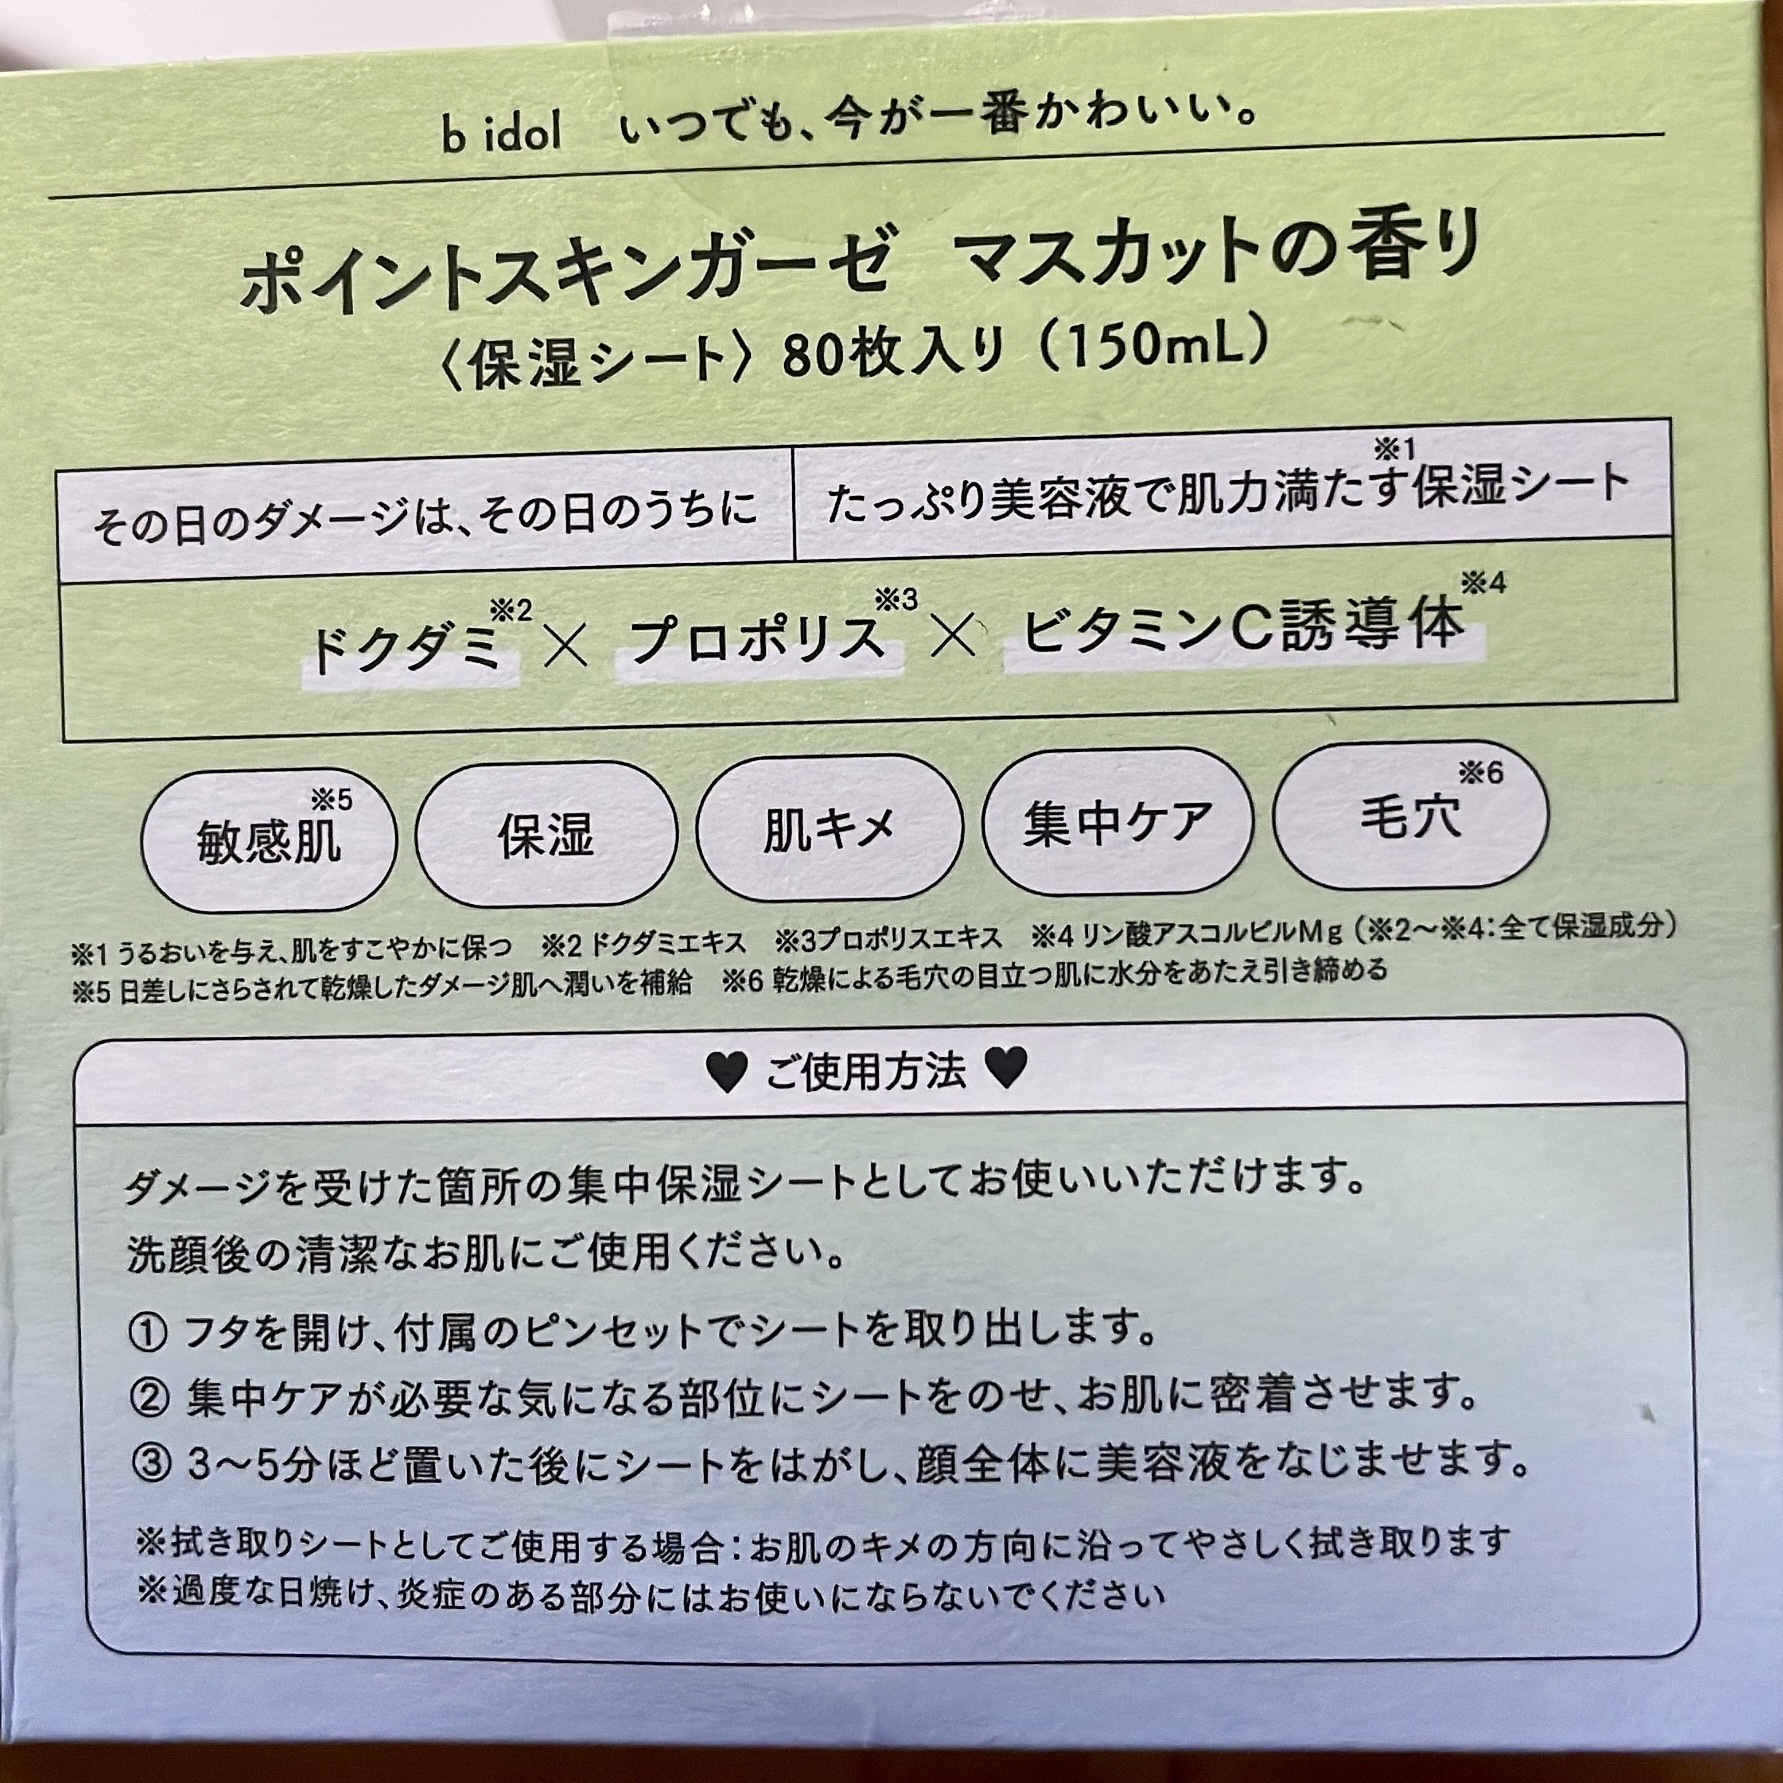 b idol いつでも、今が一番かわいい。
ポイントスキンガーゼ マスカットの香り
〈保湿シート〉80枚入り(150mL)
その日のダメージは、その日のうちに
たっぷり美容液で肌力満たす※1保湿シート
ドクダミ※2×プロポリス※3×ビタミンC誘導体※4
敏感肌※5 保湿 肌キメ 集中ケア 毛穴※6
※1 うるおいを与え、肌をすこやかに保つ ※2 ドクダミエキス ※3プロポリスエキス ※4 リン酸アスコルビルMg(※2〜※4:全て保湿成分)
※5 日差しにさらされて乾燥したダメージ肌へ潤いを補給 ※6 乾燥による毛穴の目立つ肌に水分をあたえ引き締める
♥ ご使用方法 ♥
ダメージを受けた箇所の集中保湿シートとしてお使いいただけます。
洗顔後の清潔なお肌にご使用ください。
① フタを開け、付属のピンセットでシートを取り出します。
② 集中ケアが必要な気になる部位にシートをのせ、お肌に密着させます。
③ 3〜5分ほど置いた後にシートをはがし、顔全体に美容液をなじませます。
※拭き取りシートとしてご使用する場合:お肌のキメの方向に沿ってやさしく拭き取ります
※過度な日焼け、炎症のある部分にはお使いにならないでください